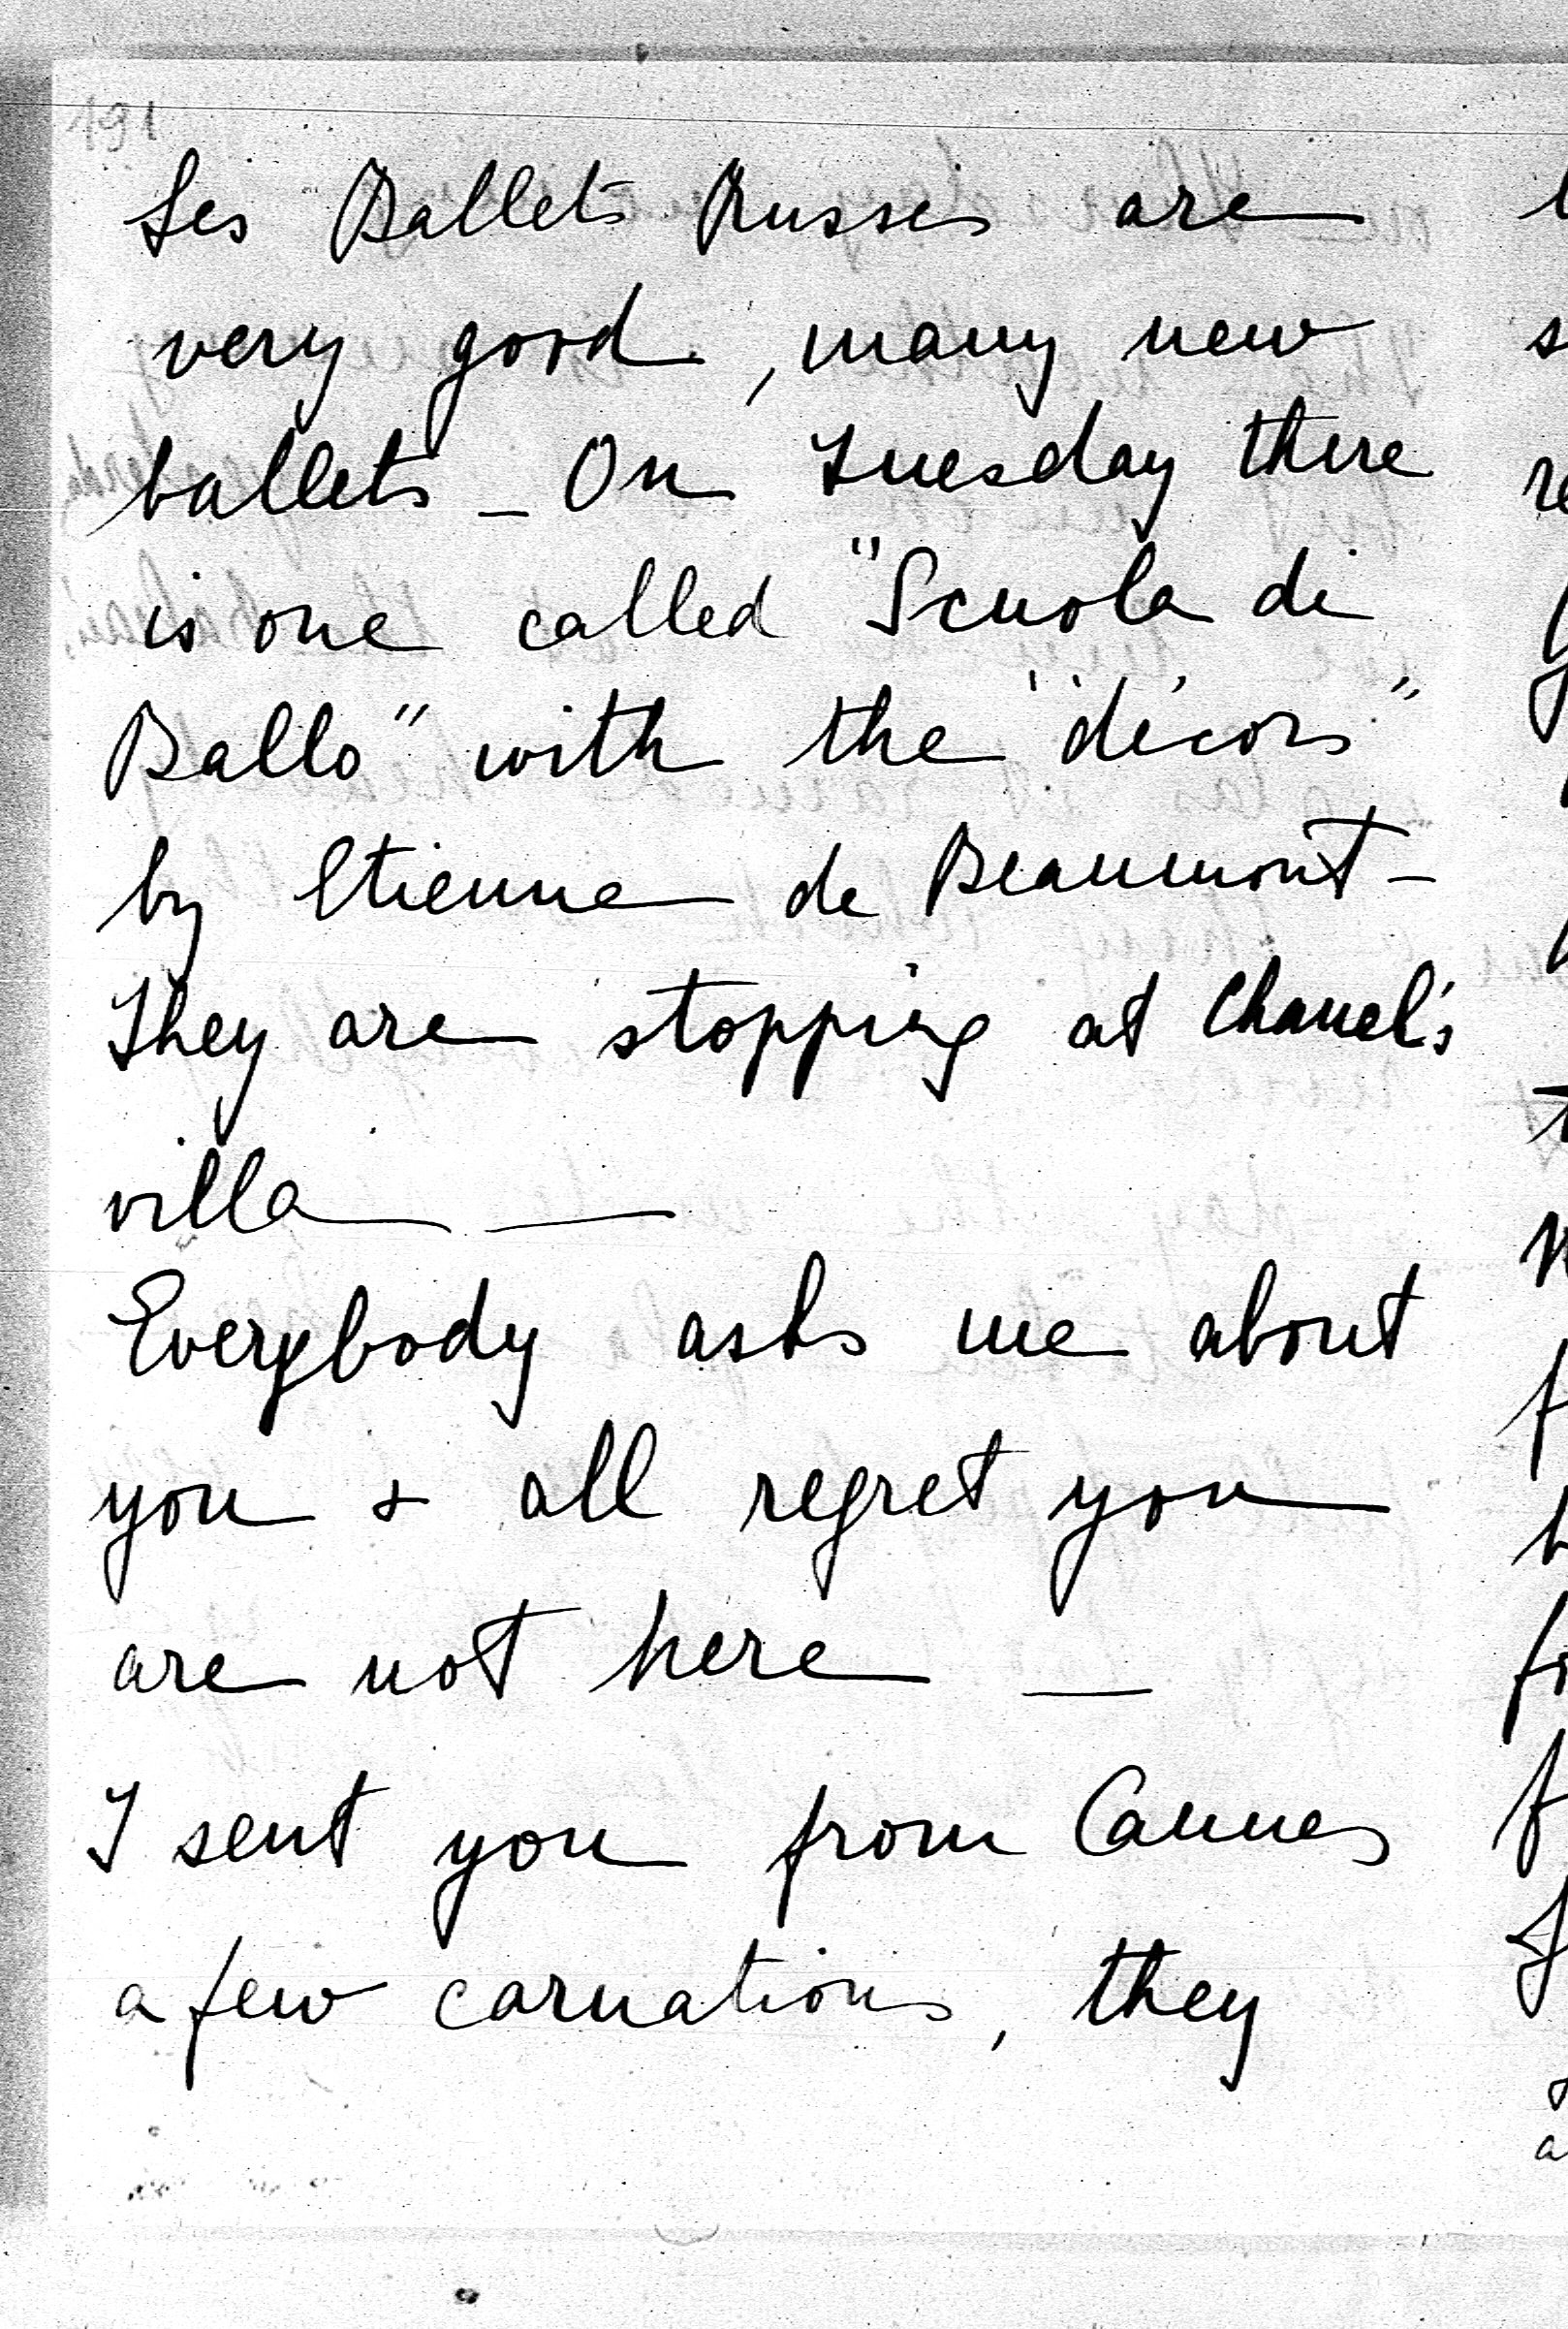 191
Les Ballets Russes are
very good, many new
ballets _ On Tuesday there
is one called "Scuola di
Ballo" with the "décors"
by Etienne de Beaumont -
They are stopping at Chanel's
villa —
Everybody asks me about
you & all regret you
are not here —
I sent you from Cannes
a few carnations, they